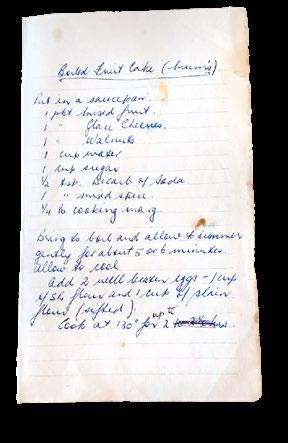 Boiled Fruit Cake (Mum's)
Put in a saucepan.
1 pkt mixed fruit.
1 " Glace Cherries.
1 " Walnuts
1 cup water
1 cup sugar
1/2 tsp. Bicarb of Soda.
" mixed spice.
1/4 lb cooking marg.
Bring to boil and allow to simmer
gently for about 5 or 6 minutes.
Allow to cool
add 2 well beaten eggs - 1 cup
of SR flour and 1 cup of plain
flour (sifted).
Cook at 130° for up to 2 hrs.